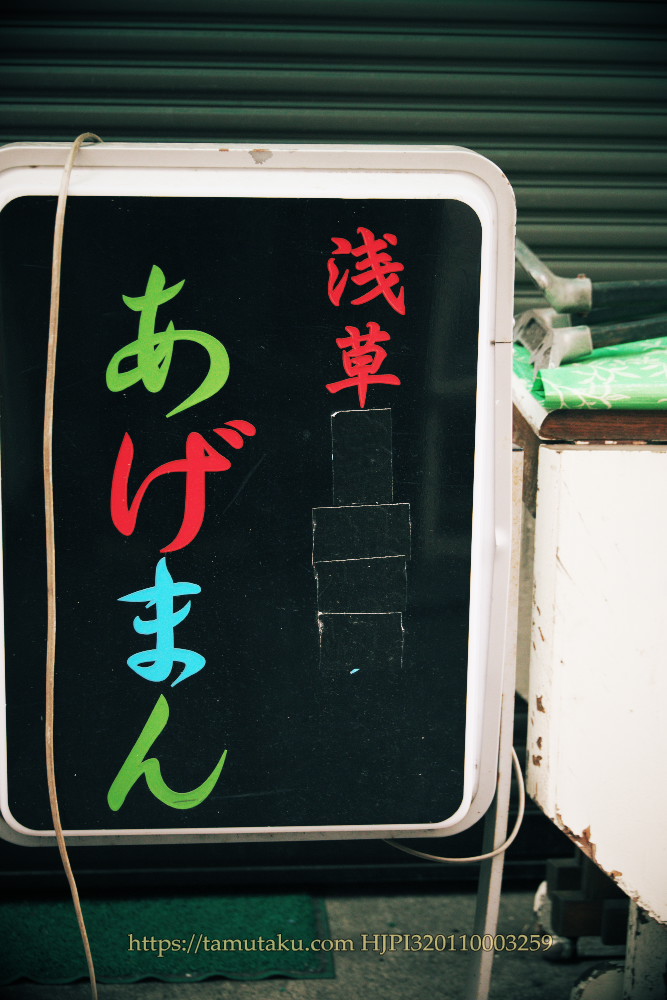 浅草
あげまん
https://tamutaku.com HJPI320110003259